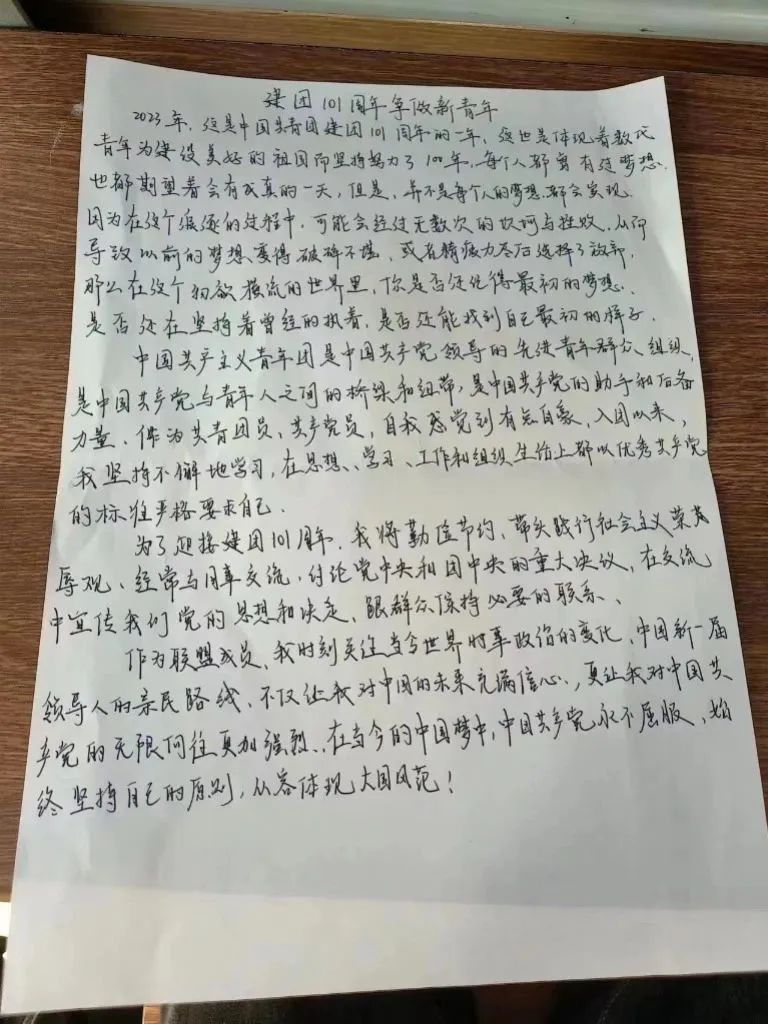 建团101周年争做新青年
2023年,这是中国共青团建团101周年的一年,这也是体现着数代
青年为建设美好的祖国而坚持努力了100年,每个人都曾有过梦想.
也都期望着会有成真的一天,但是,并不是每个人的梦想都会实现.
因为在这个追逐的过程中,可能会经过无数次的坎坷与挫败,从而
导致以前的梦想变得破碎不堪,或者精疲力尽后选择了放弃.
那么在这个物欲横流的世界里,你是否还记得最初的梦想.
是否还在坚持着曾经的执着,是否还能找到自己最初的样子.
中国共产主义青年团是中国共产党领导的先进青年群众组织,
是中国共产党与青年人之间的桥梁和纽带,是中国共产党的助手和后备
力量、作为共青团员、共产党员,自我感觉到有志自豪、入团以来,
我坚持不懈地学习,在思想、学习、工作和组织生活上都以优秀共产党
的标准严格要求自己.
为了迎接建团101周年,我将勤俭节约,带头践行社会主义荣
辱观、经常与同事交流,讨论党中央和团中央的重大决议,在交流
中宣传我们党的思想和决定,跟群众保持必要的联系、
作为联盟成员,我时刻关注当今世界时事政治的变化,中国新一届
领导人的亲民路线,不仅让我对中国的未来充满信心,更让我对中国共
产党的无限向往更加强烈、在当今的中国梦中,中国共产党永不屈服、始
终坚持自己的原则,从容体现大国风范!